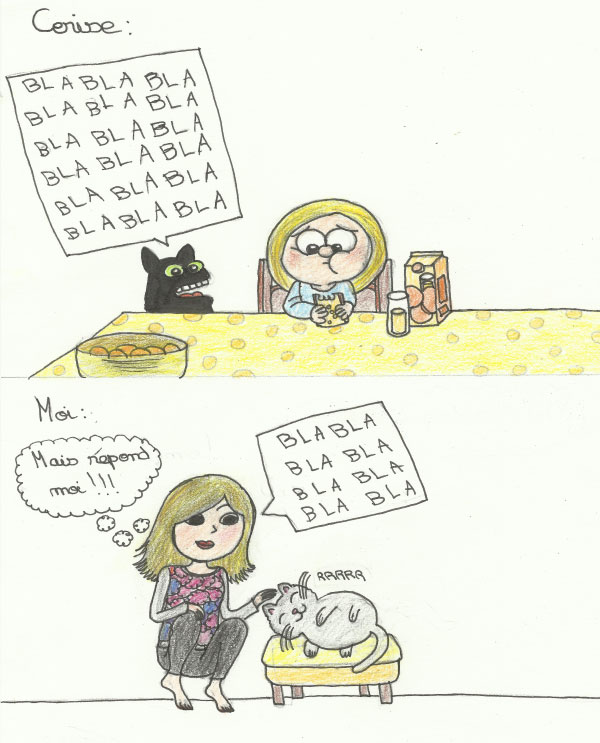 Cerise :
BLA BLA BLA
BLA BLA BLA
BLA BLA BLA
BLA BLA BLA
BLA BLA BLA
BLA BLA BLA
Moi :
Mais répond
moi !!!
BLA BLA
BLA BLA
BLA BLA
BLA BLA
RRRRR